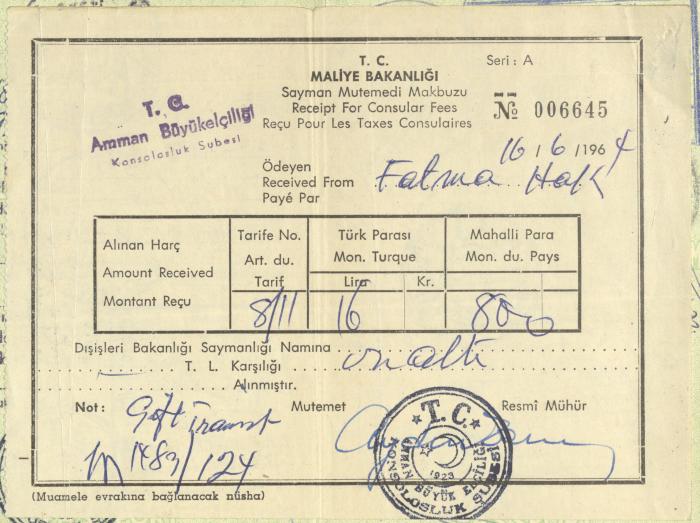 T. C.
MALİYE BAKANLIĞI
Seri : A
Sayman Mutemedi Makbuzu
Receipt For Consular Fees
Reçu Pour Les Taxes Consulaires
№ 006645
T. C.
Amman Büyükelçiliği
Konsolosluk Şubesi
16 / 6 / 1964
Ödeyen
Received From Fatma Hak
Payé Par
Alınan Harç
Amount Received
Montant Reçu
Tarife No.
Art. du.
Tarif
Türk Parası
Mon. Turque
Lira Kr.
Mahalli Para
Mon. du. Pays
8/11 16 800
Dışişleri Bakanlığı Saymanlığı Namına
T. L. Karşılığı onaltı
Alınmıştır.
Not : Çift Transit
1483/124
Mutemet
Resmî Mühür
T. C.
AMMAN BÜYÜK ELÇİLİĞİ
KONSOLOSLUK ŞUBESİ
1923
(Muamele evrakına bağlanacak nüsha)